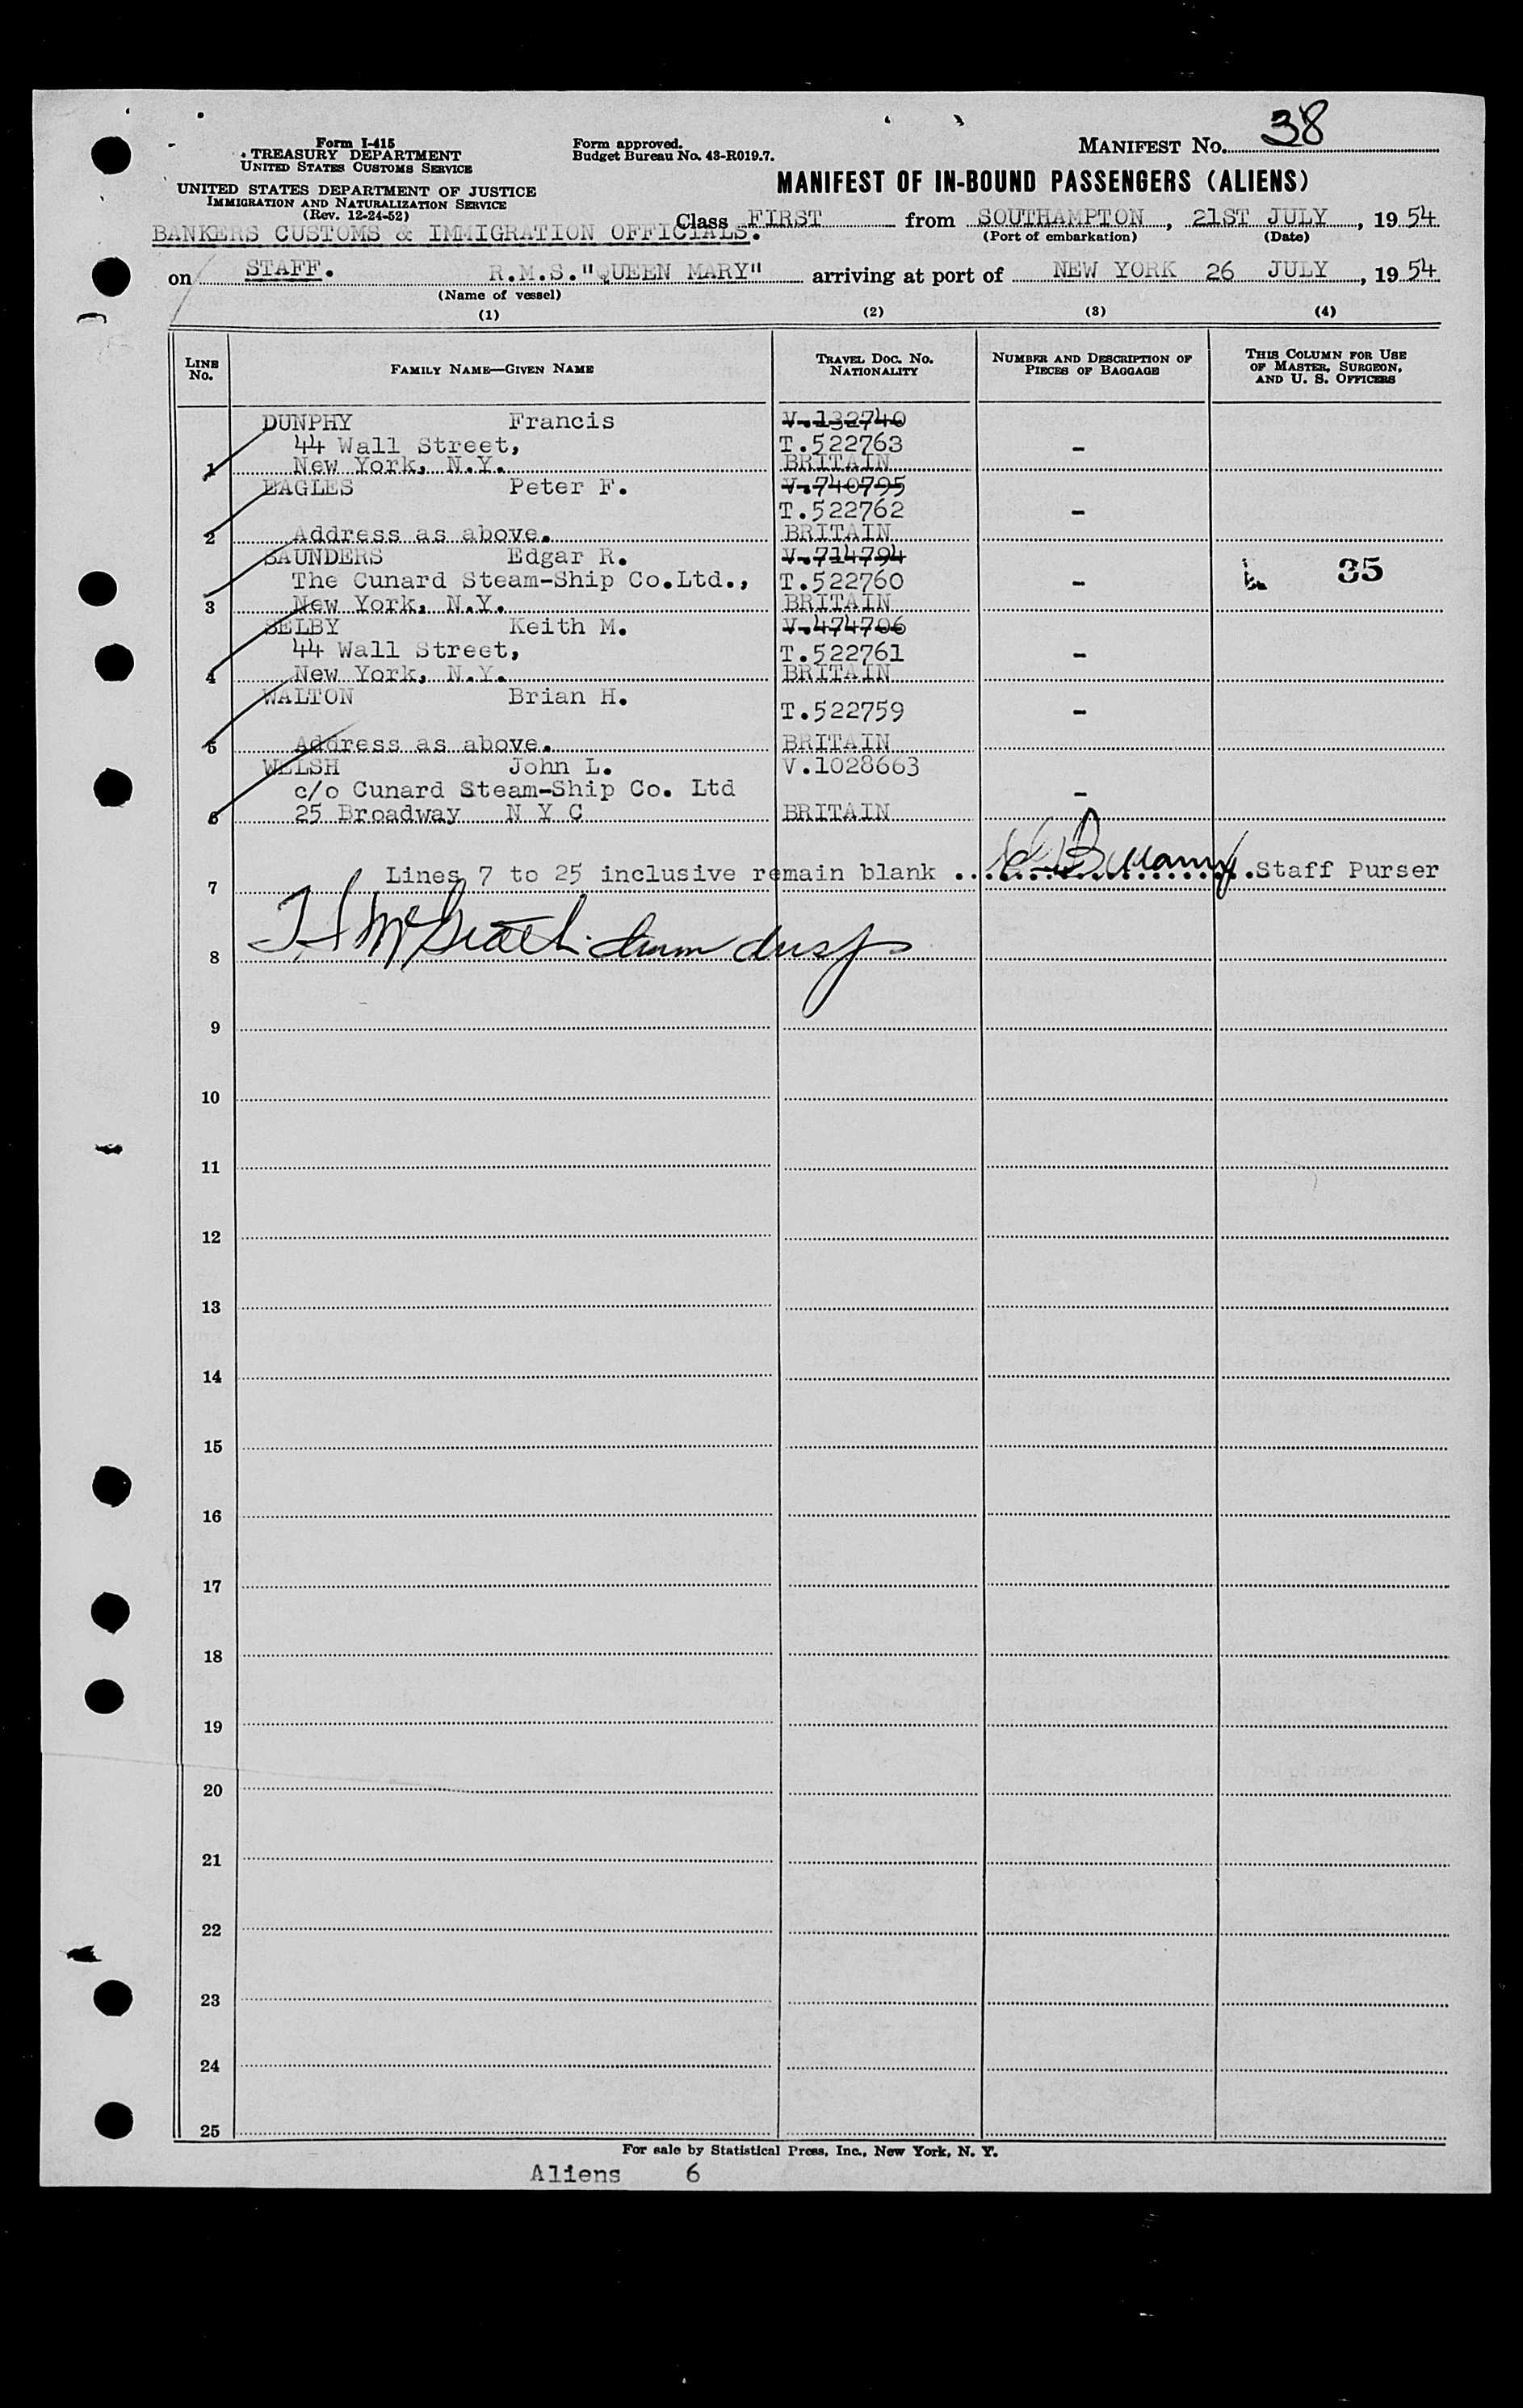 Form I-415
TREASURY DEPARTMENT
UNITED STATES CUSTOMS SERVICE
UNITED STATES DEPARTMENT OF JUSTICE
IMMIGRATION AND NATURALIZATION SERVICE
(Rev. 12-24-52)
Form approved.
Budget Bureau No. 43-R019.7.
MANIFEST No. 38
MANIFEST OF IN-BOUND PASSENGERS (ALIENS)
BANKERS CUSTOMS & IMMIGRATION OFFICIALS.
Class FIRST from SOUTHAMPTON, 21ST JULY, 1954
(Port of embarkation) (Date)
on STAFF. R.M.S."QUEEN MARY" arriving at port of NEW YORK 26 JULY, 1954
(Name of vessel)
(1) (2) (3) (4)
LINE No. FAMILY NAME—GIVEN NAME TRAVEL DOC. No. NATIONALITY NUMBER AND DESCRIPTION OF PIECES OF BAGGAGE THIS COLUMN FOR USE OF MASTER, SURGEON, AND U. S. OFFICERS
DUNPHY Francis V.132740
44 Wall Street, T.522763 -
1 New York, N.Y. BRITAIN
EAGLES Peter F. V.740795
T.522762 -
2 Address as above. BRITAIN
SAUNDERS Edgar R. V.714794
The Cunard Steam-Ship Co.Ltd., T.522760 - 35
3 New York, N.Y. BRITAIN
SELBY Keith M. V.474706
44 Wall Street, T.522761 -
4 New York, N.Y. BRITAIN
WALTON Brian H.
T.522759 -
5 Address as above. BRITAIN
WELSH John L. V.1028663
c/o Cunard Steam-Ship Co. Ltd -
6 25 Broadway N Y C BRITAIN
7 Lines 7 to 25 inclusive remain blank Staff Purser
8 McGrath
9
10
11
12
13
14
15
16
17
18
19
20
21
22
23
24
25
For sale by Statistical Press, Inc., New York, N. Y.
Aliens 6